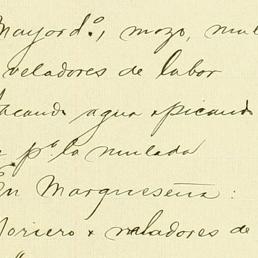 Mayord.º, 1 mozo, mul
veladores de labor
sacando agua o picando
p.ª la mulada
En Marqueseña:
Noriero + veladores de